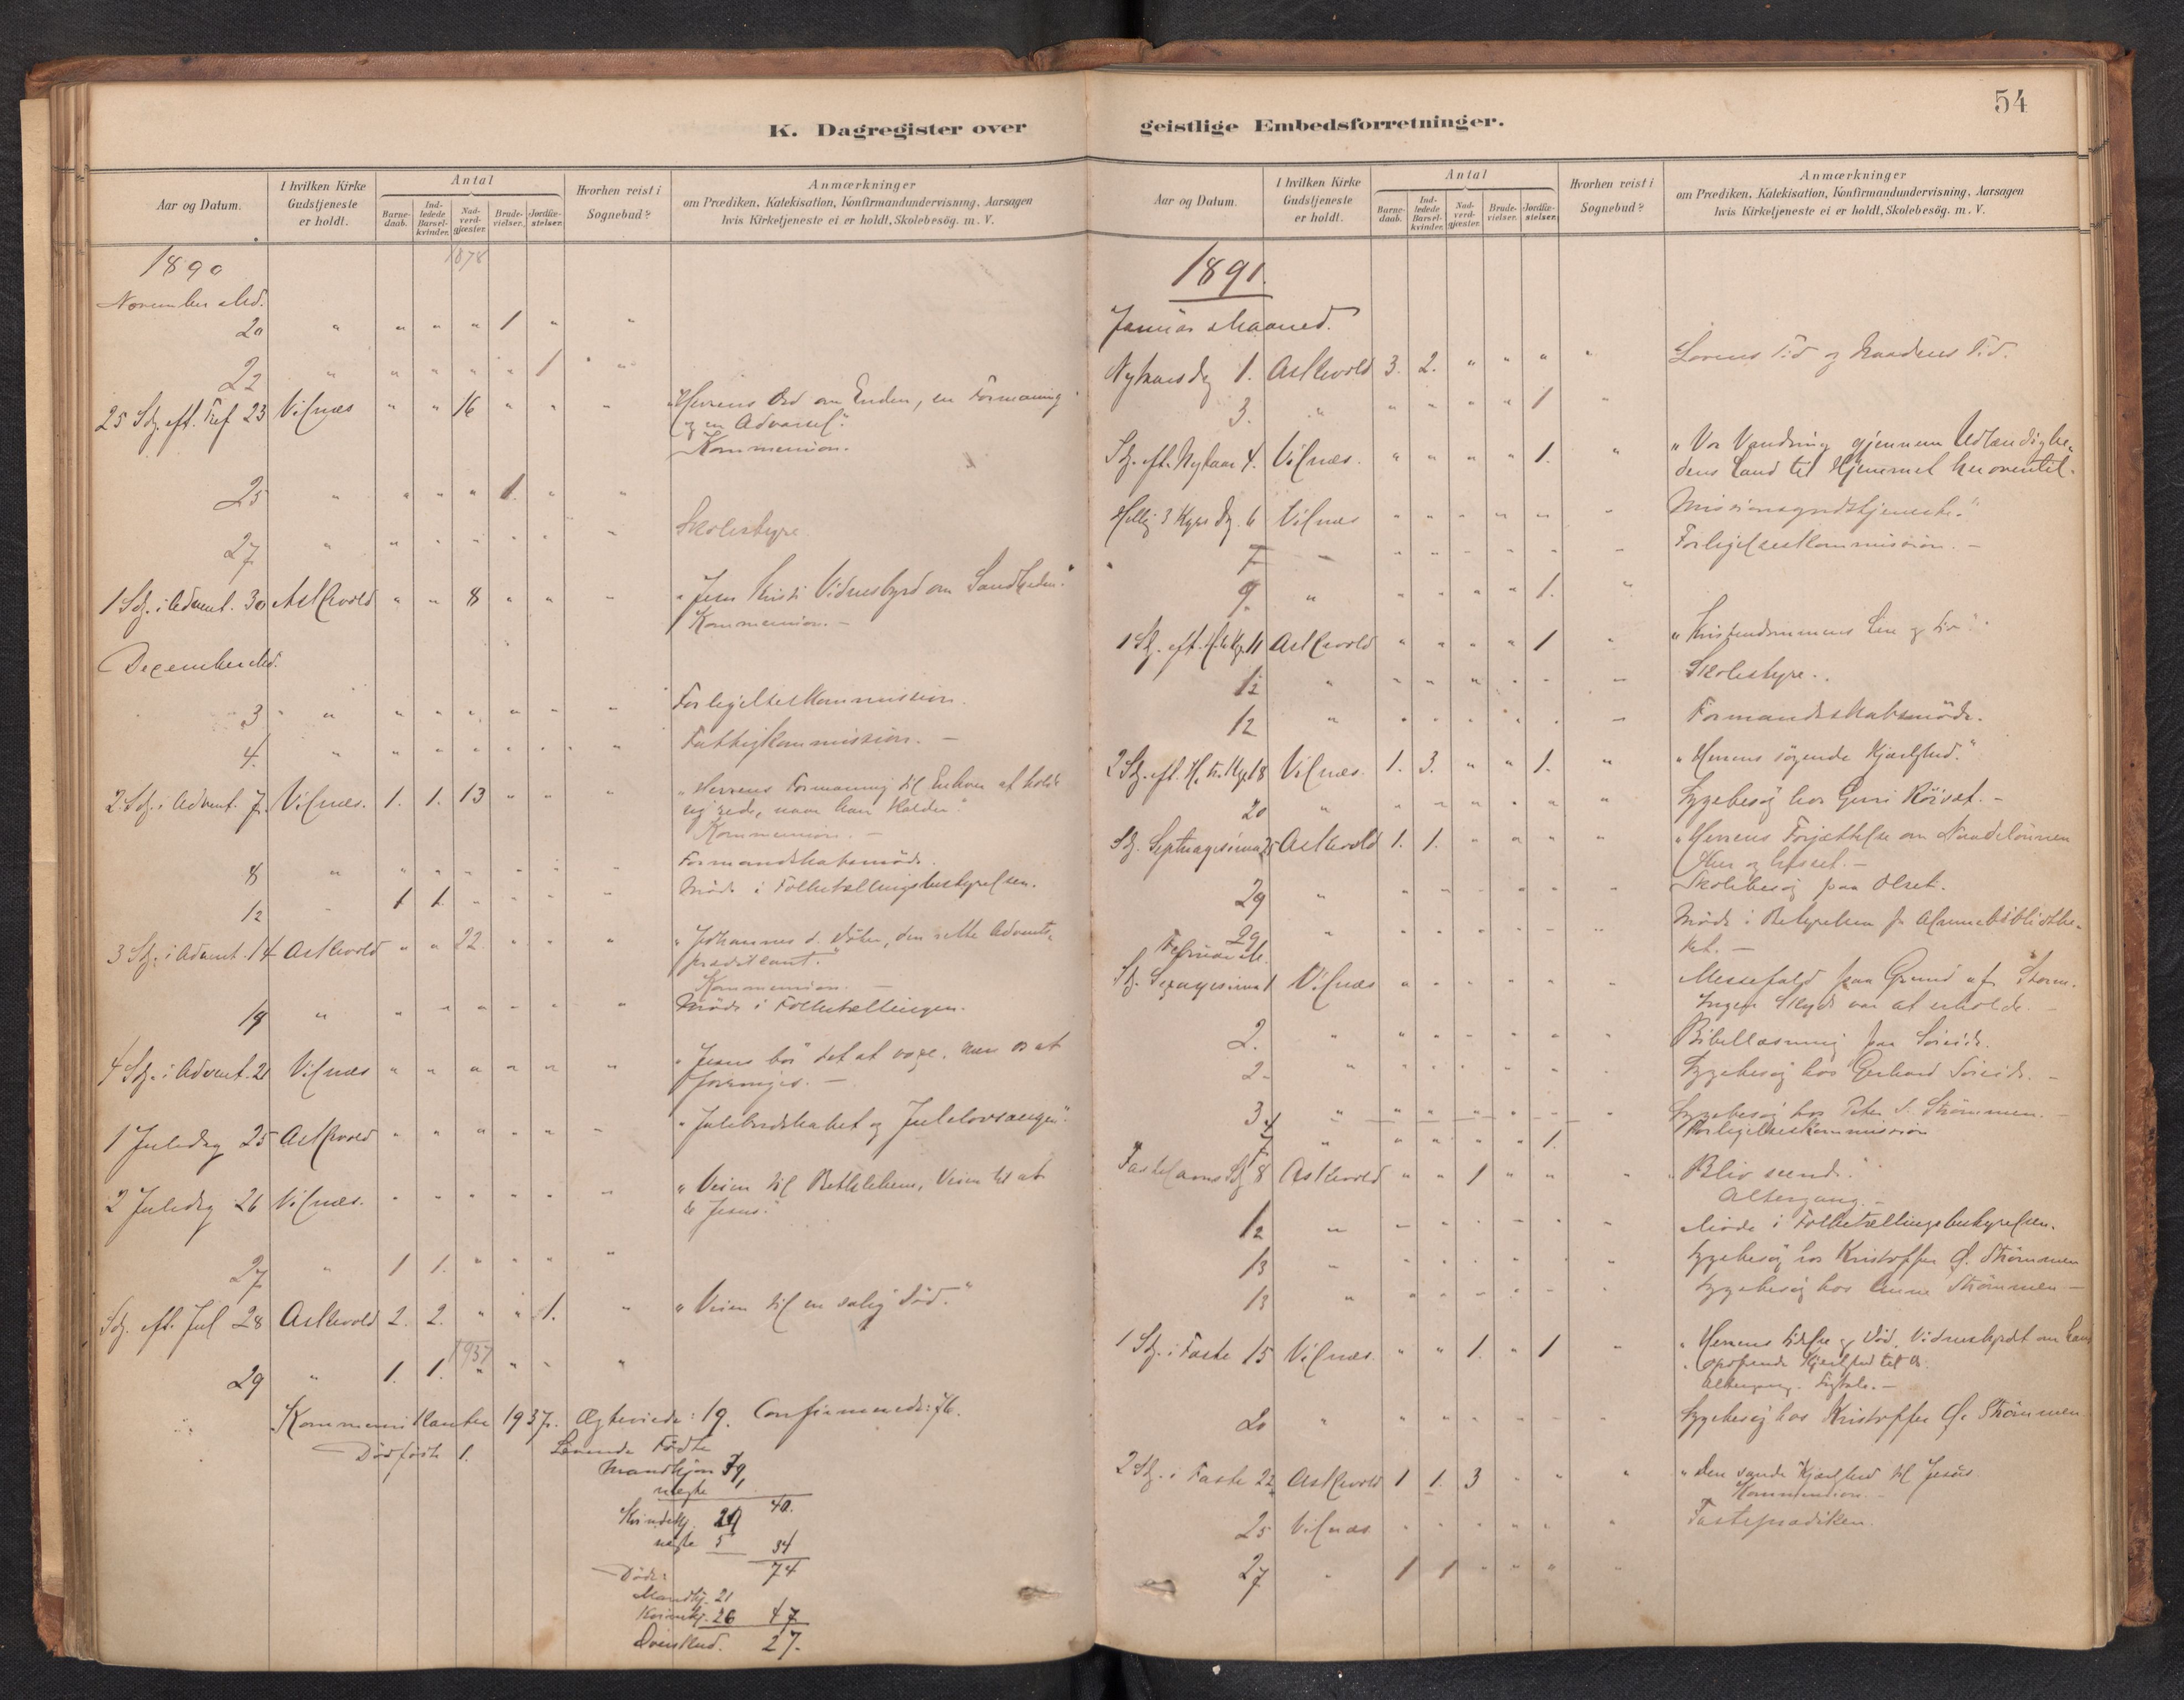 54
K. Dagregister over
geistlige Embedsforretninger.
Aar og Datum.
I hvilken Kirke Gudstjeneste er holdt.
Antal
Barne-daab.
Ind-ledede Barsel-kvinder.
Nad-verd-gjæster.
Brude-vielser.
Jordfæ-stelser.
Hvorhen reist i Sognebud?
Anmærkninger
om Prædiken, Katekisation, Konfirmandundervisning, Aarsagen
hvis Kirketjeneste ei er holdt, Skolebesög. m. V.
1890 1878
November Md.
20 " " " " 1 " "
22 " " " " " 1 "
25 Sdg. eft. Tref. 23 Vilnæs " " 16 " " " "Herrens Ord om Enden, en Formaning
og en Advarsel".
Kommunion.
25 " " " " 1 " "
27 " " " " " " " Skolestyre.
1 Sdg. i Advent. 30 Askevold " " 8 " " " "Jesu Kristi Vidnesbyrd om Sandheden"
Kommunion. –
December Md.
3 " " " " " " " Forligelseskommission.
4. " " " " " " " Fattigkommission. –
2 Sdg. i Advent. 7. Vilnæs. 1. 1. 13 " " " "Herrens Formaning til Enhver at holde
sig rede, naar han kalder."
Kommunion. –
8 " " " " " " " Formandskabsmöde.
12 " 1 1. " " " " Möde i Folketællingsbestyrelsen.
3 Sdg. i Advent. 14 Askevold " " 22 " " " "Johannes d. Döber, den rette Advents-
prædikant."
Kommunion. –
19 " " " " " " " Möde i Folketællingen.
4 Sdg. i Advent. 21 Vilnæs " " " " " " "Jesus bör det at voxe, men os at
forringes. –
1 Juledag 25 Askevold " " " " " " "Julebudskabet og Julelovsangen".
2 Juledag 26 Vilnæs. " " " " " " "Veien til Bethlehem, Veien til at
Jesus."
27 " 1 1. " " " "
Sdg. eft. Jul 28 Askevold 2. 2. " " 1. " "Veien til en salig Död."
1937
29 " 1. 1. " " " "
Kommunikanter 1937. Ægteviede: 19. Confirmerede: 76.
Dödfödte 1. Levende Födte
Mandkjön 39,
uægte 40.
Kvindekj. 29
uægte 5 34
74
Döde:
Mandkj. 21
Kvindekj. 26 47
Overskud. 27.
Aar og Datum.
I hvilken Kirke Gudstjeneste er holdt.
Antal
Barne-daab.
Ind-ledede Barsel-kvinder.
Nad-verd-gjæster.
Brude-vielser.
Jordfæ-stelser.
Hvorhen reist i Sognebud?
Anmærkninger
om Prædiken, Katekisation, Konfirmandundervisning, Aarsagen
hvis Kirketjeneste ei er holdt, Skolebesög. m. V.
1891.
Januar Maaned.
Nytaarsdag 1. Askevold 3. 2. " " " " Lovens Tid og Naadens Tid.
3. " " " " " 1 "
Sdg. eft. Nytaar 4. Vilnæs. " " " " 1. " "Vor Vandring gjennem Udlændighe-
dens Land til Hjemmet heroventil.
Hellig 3 Kgrs Dg. 6 Vilnæs " " " " " " Missionsgudstjeneste."
7 " " " " " " " Forligelseskommission. –
9. " " " " " 1. "
1 Sdg. eft. H. 3 Kgr. 11 Askevold " " " " 1 " "Kristendommens Lære og Liv"
12 " " " " " " " Skolestyre.
12 " " " " " " " Formandskabsmöde.
2 Sdg. eft. H. tr. Kgr. 18 Vilnæs. 1. 3. " " 1. " "Herrens sögende Kjærlighed."
20 " " " " " " " Sygebesög hos Guri Röiset. –
Sdg. Septuagesima 25 Askevold 1. 1. " " " " "Herrens Forjættelse om Naadelönnen
Her og hisset. –
29 " " " " " " " Skolebesög paa Olset.
29 " " " " " " " Möde i Bestyrelsen f. Almuebibliothe-
ket. –
Februar M.
Sdg. Sexagesima 1 Vilnæs " " " " " " Messefald paa Grund af Storm.
Ingen Skyds var at erholde. –
2. " " " " " " " Bibellæsning paa
2. " " " " " " " Sygebesög hos Gerhard
3 " " " " " " " Sygebesög hos Peter S. Strömmen. –
4 Forligelseskommission
7 " " " " " 1. "
Fastelavns Sdg. 8 Askevold " " 1 " " " "Bliv seende."
Altergang. –
12 " " " " " " " Möde i Folketællingsbestyrelsen.
13 " " " " " " " Sygebesög hos Kristoffer O. Strömmen
13 " " " " " " " Sygebesög hos Anne Strömmen –
1 Sdg. i Faste 15 Vilnæs. " " 1. " 1 " "Herrens Lidelse og Död, Vidnesbyrdet om hans
opofrende Kjærlighed til os.
Altergang. –
20 " " " " " " " Sygebesög hos Kristoffer O. Strömmen
2 Sdg. i Faste 22 Askevold 1 1. 3 " " " "Den sande Kjærlighed til Jesus.
Kommunion. –
25 Vilnæs " " " " " " Fasteprædiken.
27 " 1 1 " " " "